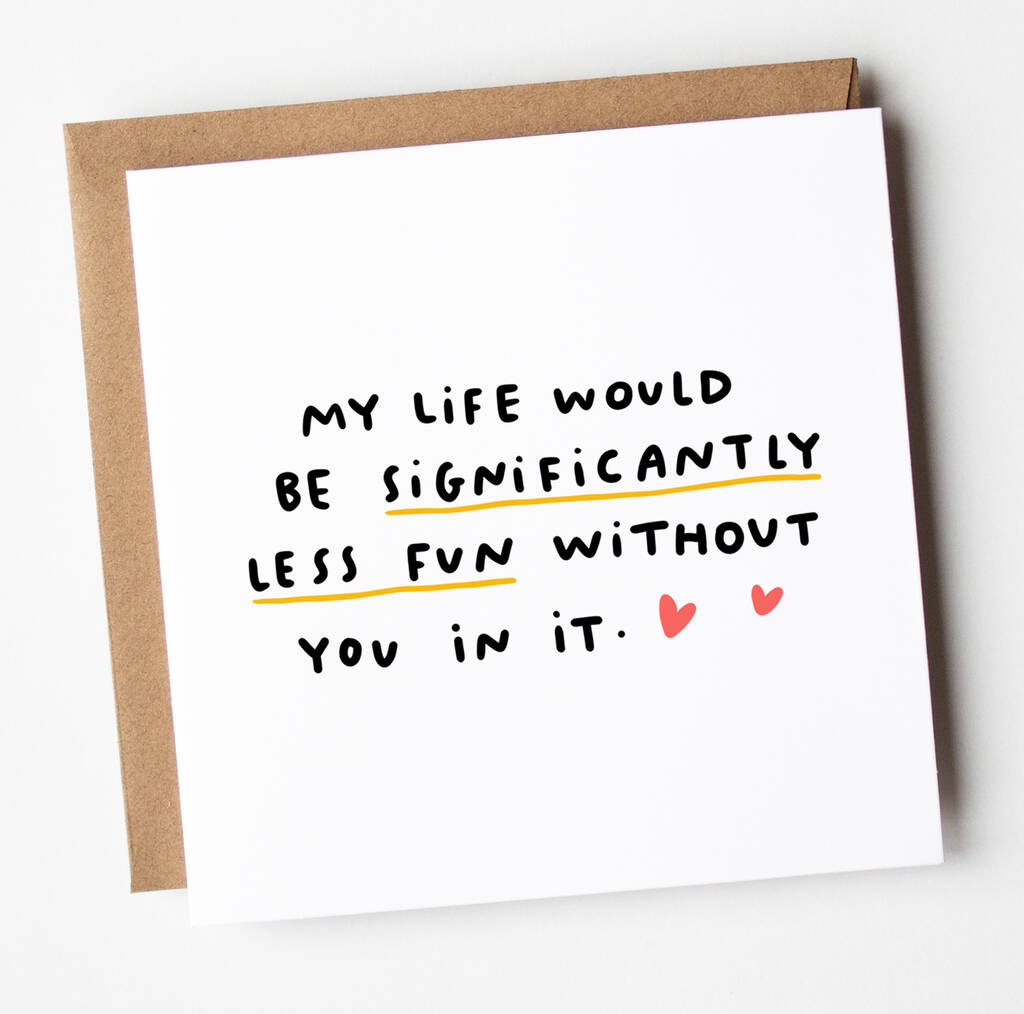 MY LiFE WOULD
BE SiGNiFiCANTLY
LESS FUN WiTHOUT
YOU iN iT.